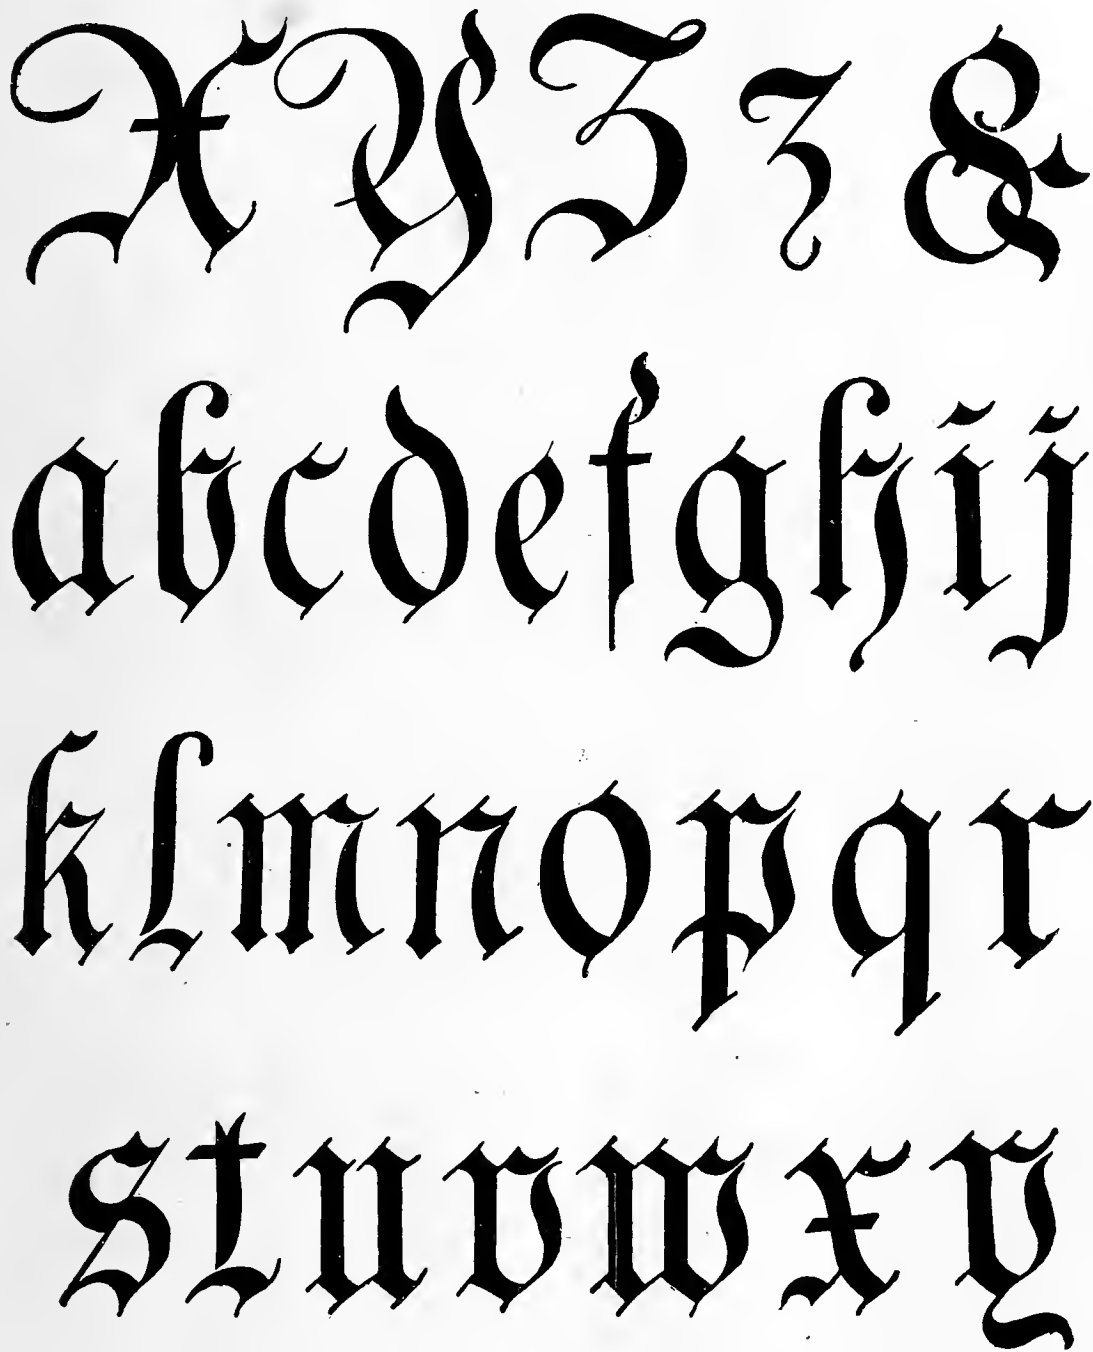 X Y Z z &
a b c d e f g h i j
k l m n o p q r
s t u v w x y